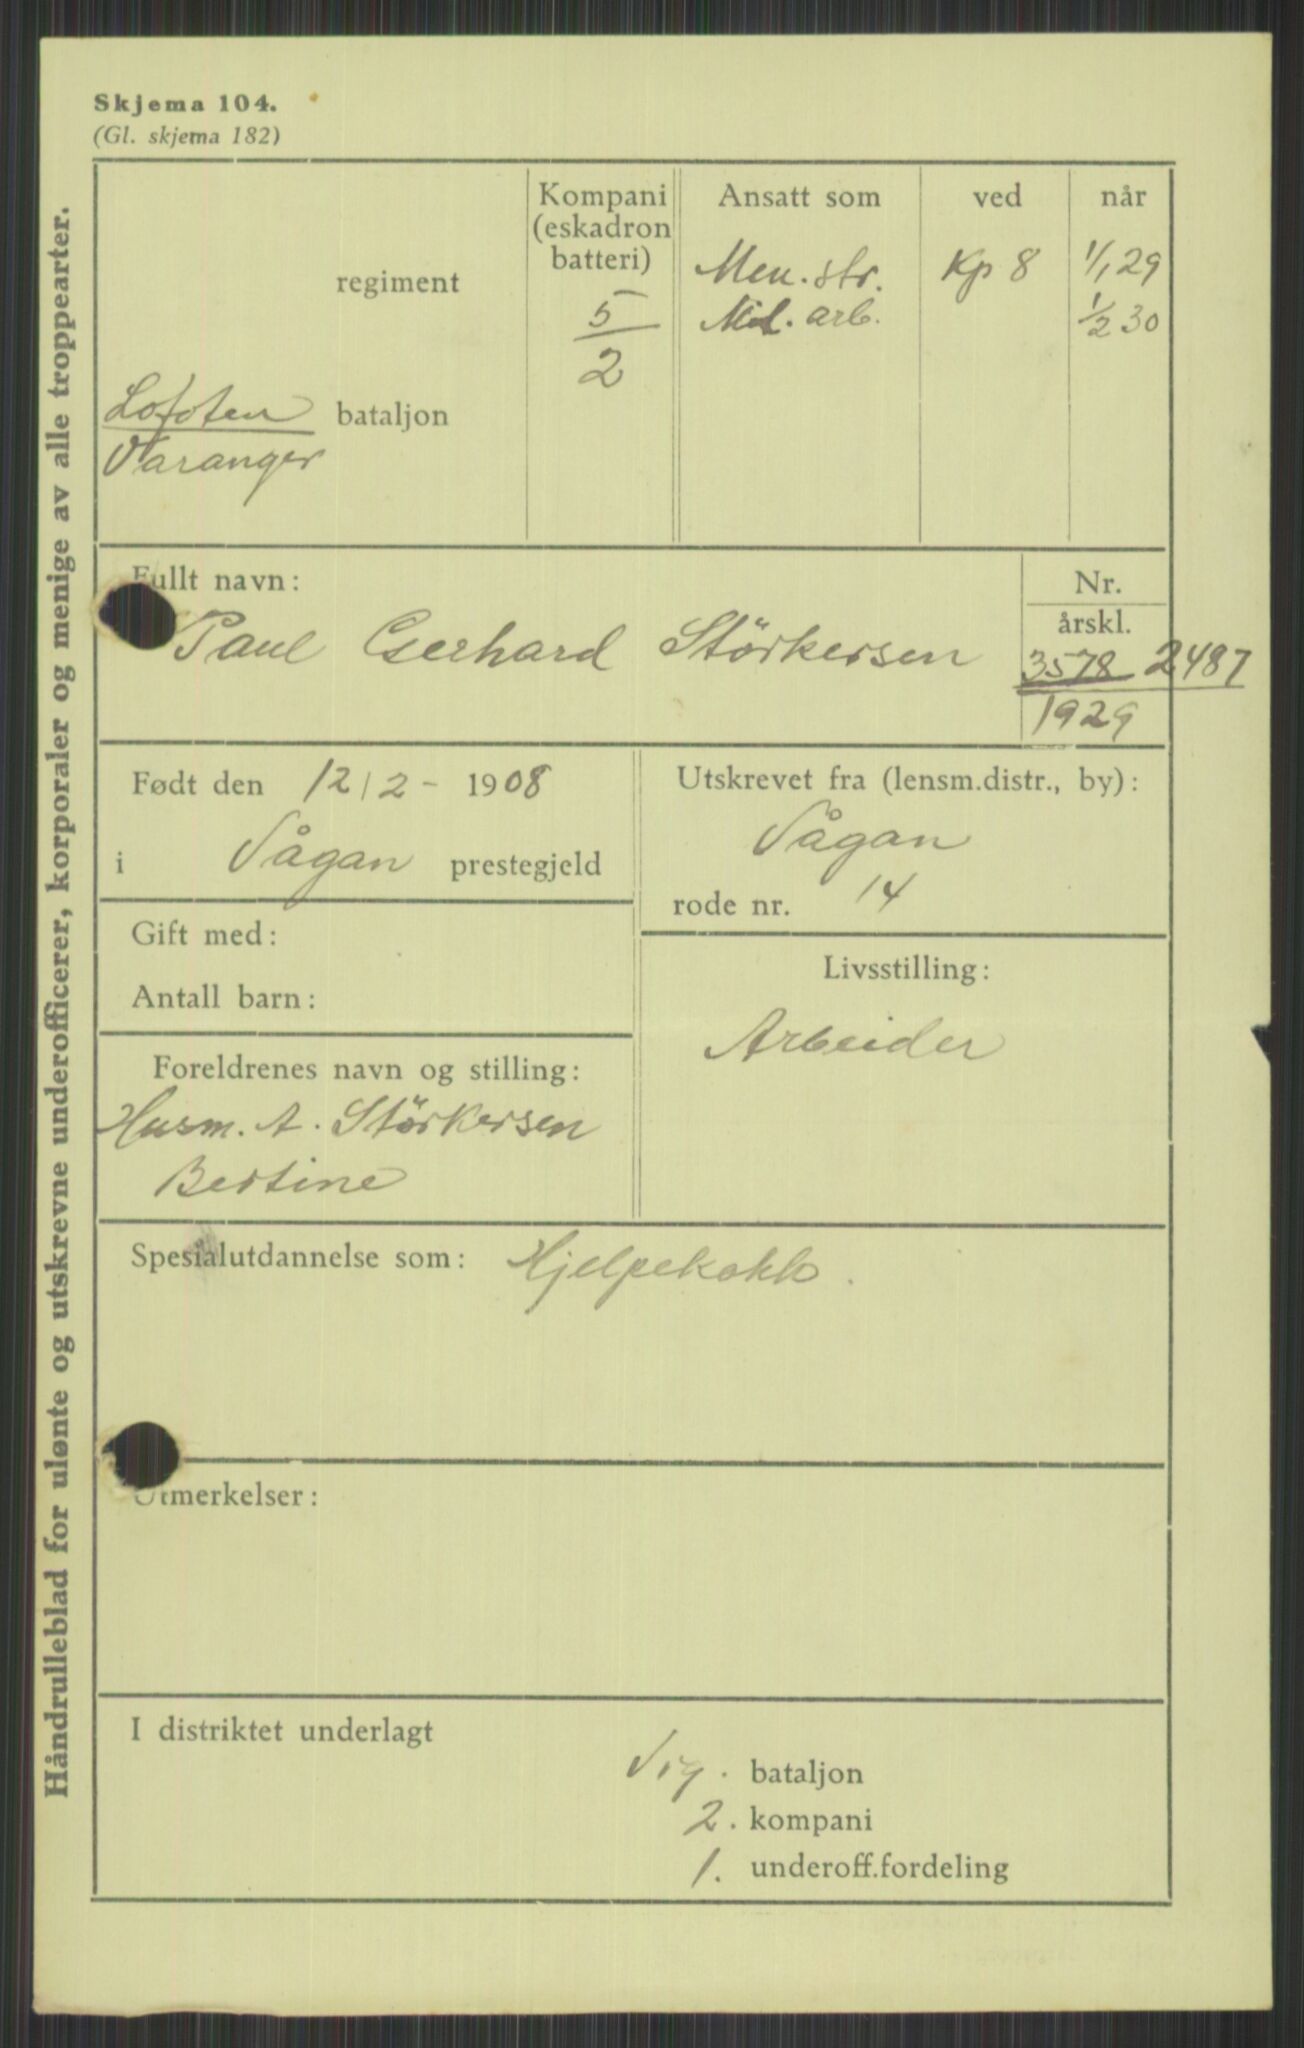 Skjema 104.
(Gl. skjema 182)
Håndrulleblad for ulønte og utskrevne underofficerer, korporaler og menige av alle troppearter.
regiment
Lofoten bataljon
Varanger
Kompani
(eskadron
batteri)
5
2
Ansatt som ved når
Men. str. Kp 8 1/1 29
Mil. arb. 1/2 30
Fullt navn:
Paul Gerhard Störkersen
Nr.
årskl.
3578 2487
1929
Født den 12/2 - 1908
i Vågan prestegjeld
Utskrevet fra (lensm.distr., by):
Vågan
rode nr. 14
Gift med:
Antall barn:
Livsstilling:
Arbeider
Foreldrenes navn og stilling:
Husm. A. Störkersen
Bertine
Spesialutdannelse som: Hjelpekokk.
Utmerkelser:
I distriktet underlagt
Vig. bataljon
2. kompani
1. underoff.fordeling